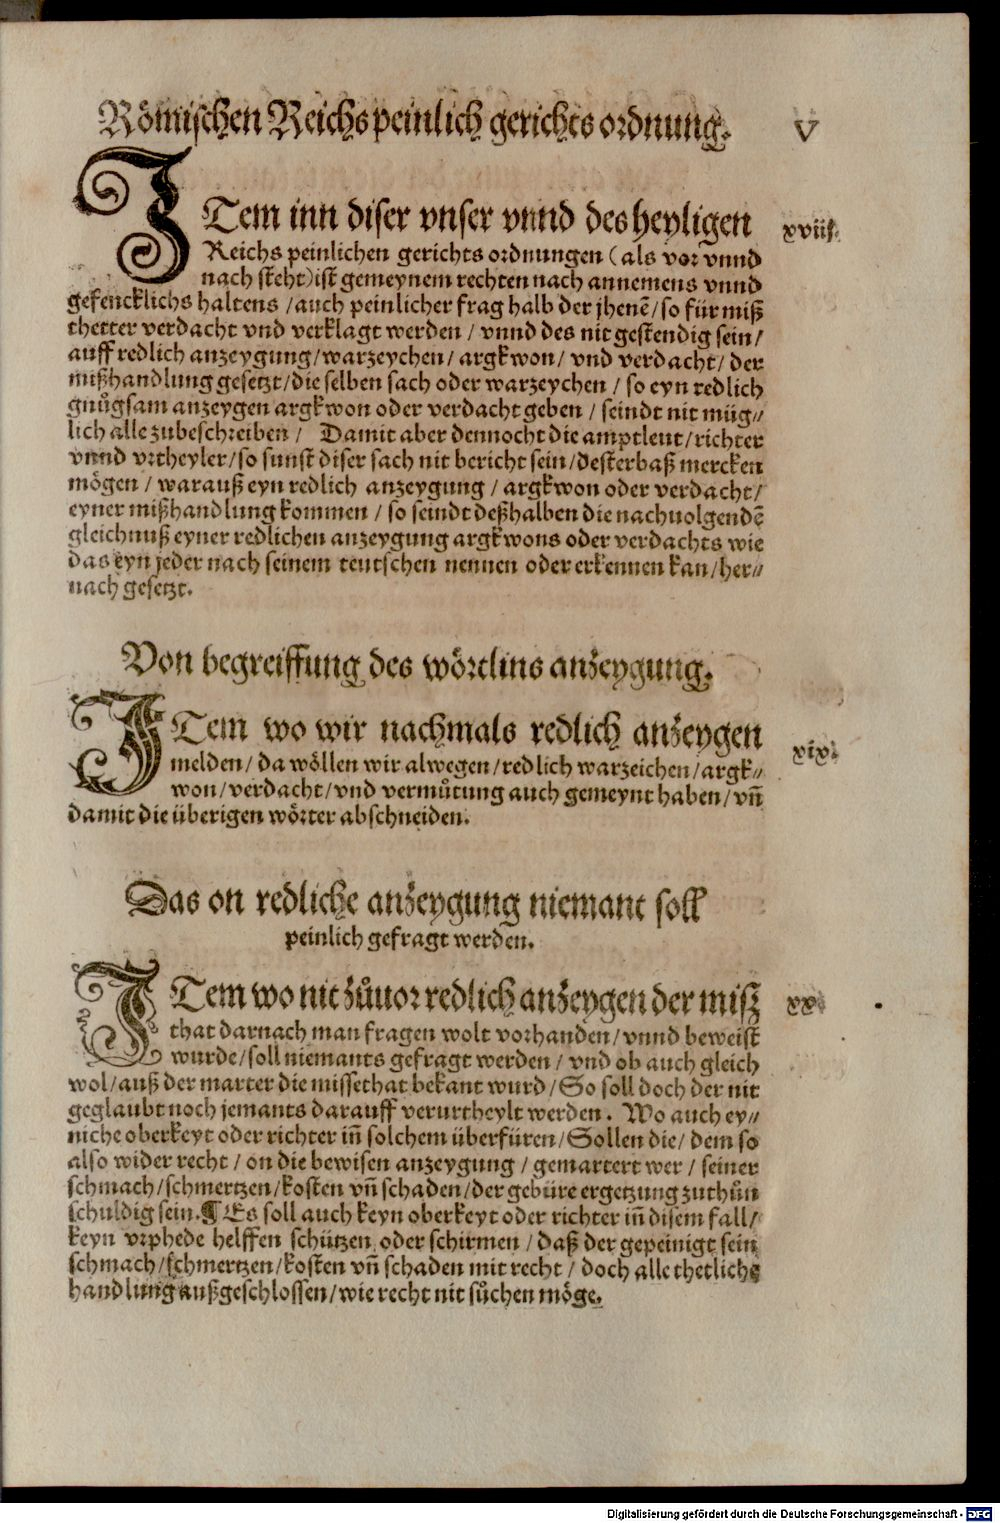 Römischen Reichs peinlich gerichts ordnung. V
ITem inn diser vnser vnnd des heyligen xviij.
Reichs peinlichen gerichts ordnungen (als vor vnnd
nach steht) ist gemeynem rechten nach annemens vnnd
gefencklichs haltens / auch peinlicher frag halb der jhenē / so für miß
thetter verdacht vnd verklagt werden / vnnd des nit gestendig sein /
auff redlich anzeygung / warzeychen / argkwon / vnd verdacht / der
mißhandlung gesetzt / die selben sach oder warzeychen / so eyn redlich
gnůgsam anzeygen argkwon oder verdacht geben / seindt nit müg⸗
lich alle zubeschreiben / Damit aber dennocht die amptleut / richter
vnnd vrtheyler / so sunst diser sach nit bericht sein / desterbaß mercken
mögen / warauß eyn redlich anzeygung / argkwon oder verdacht /
eyner mißhandlung kommen / so seindt deßhalben die nachuolgendē
gleichnuß eyner redlichen anzeygung argkwons oder verdachts wie
das eyn jeder nach seinem teutschen nennen oder erkennen kan / her⸗
nach gesetzt.
Von begreiffung des wörtlins anzeygung.
ITem wo wir nachmals redlich anzeygen xix.
melden / da wöllen wir alwegen / redlich warzeichen / argk⸗
won / verdacht / vnd vermůtung auch gemeynt haben / vn̄
damit die überigen wörter abschneiden.
Das on redliche anzeygung niemant soll
peinlich gefragt werden.
ITem wo nit zůuor redlich anzeygen der misz xx.
that darnach man fragen wolt vorhanden / vnnd beweist
wurde / soll niemants gefragt werden / vnd ob auch gleich
wol / auß der marter die missethat bekant wurd / So soll doch der nit
geglaubt noch jemants darauff verurtheylt werden. Wo auch ey⸗
niche oberkeyt oder richter in̄ solchem überfüren / Sollen die / dem so
also wider recht / on die bewisen anzeygung / gemartert wer / seiner
schmach / schmertzen / kosten vn̄ schaden / der gebüre ergetzung zuthůn
schuldig sein. ¶ Es soll auch keyn oberkeyt oder richter in̄ disem fall /
keyn vrphede helffen schützen oder schirmen / daß der gepeinigt sein
schmach / schmertzen / kosten vn̄ schaden mit recht / doch alle thetliche
handlung außgeschlossen / wie recht nit sůchen möge.
Digitalisierung gefördert durch die Deutsche Forschungsgemeinschaft - DFG